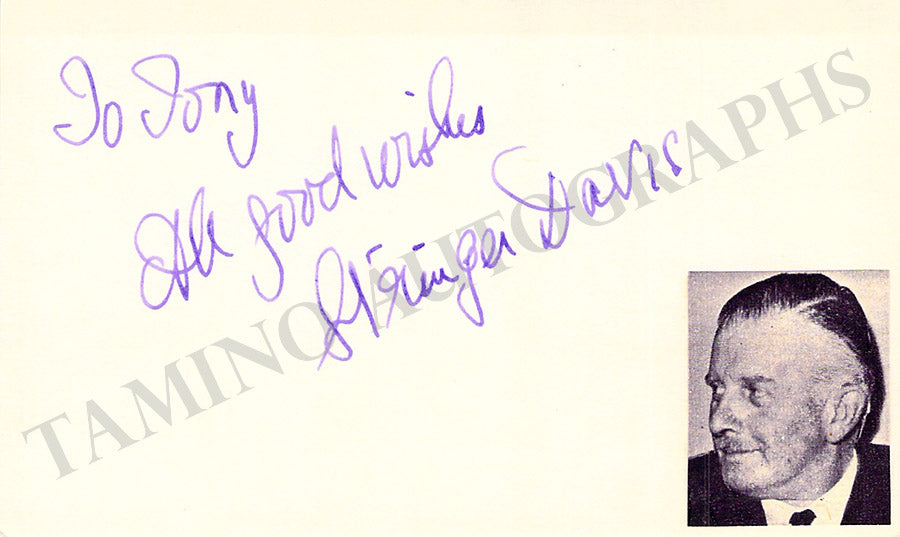 To Tony
All good wishes
Stringer Davis
TAMINO AUTOGRAPHS